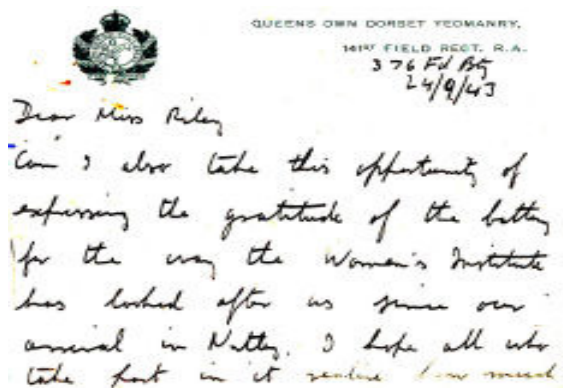 QUEENS OWN DORSET YEOMANRY,
141ST FIELD REGT. R.A.
376 Fd Bty
24/9/43
Dear Miss Riley
Can I also take this opportunity of
expressing the gratitude of the battery
for the way the Women's Institute
has looked after us since our
arrival in Nutley. I hope all who
take part in it realise how much